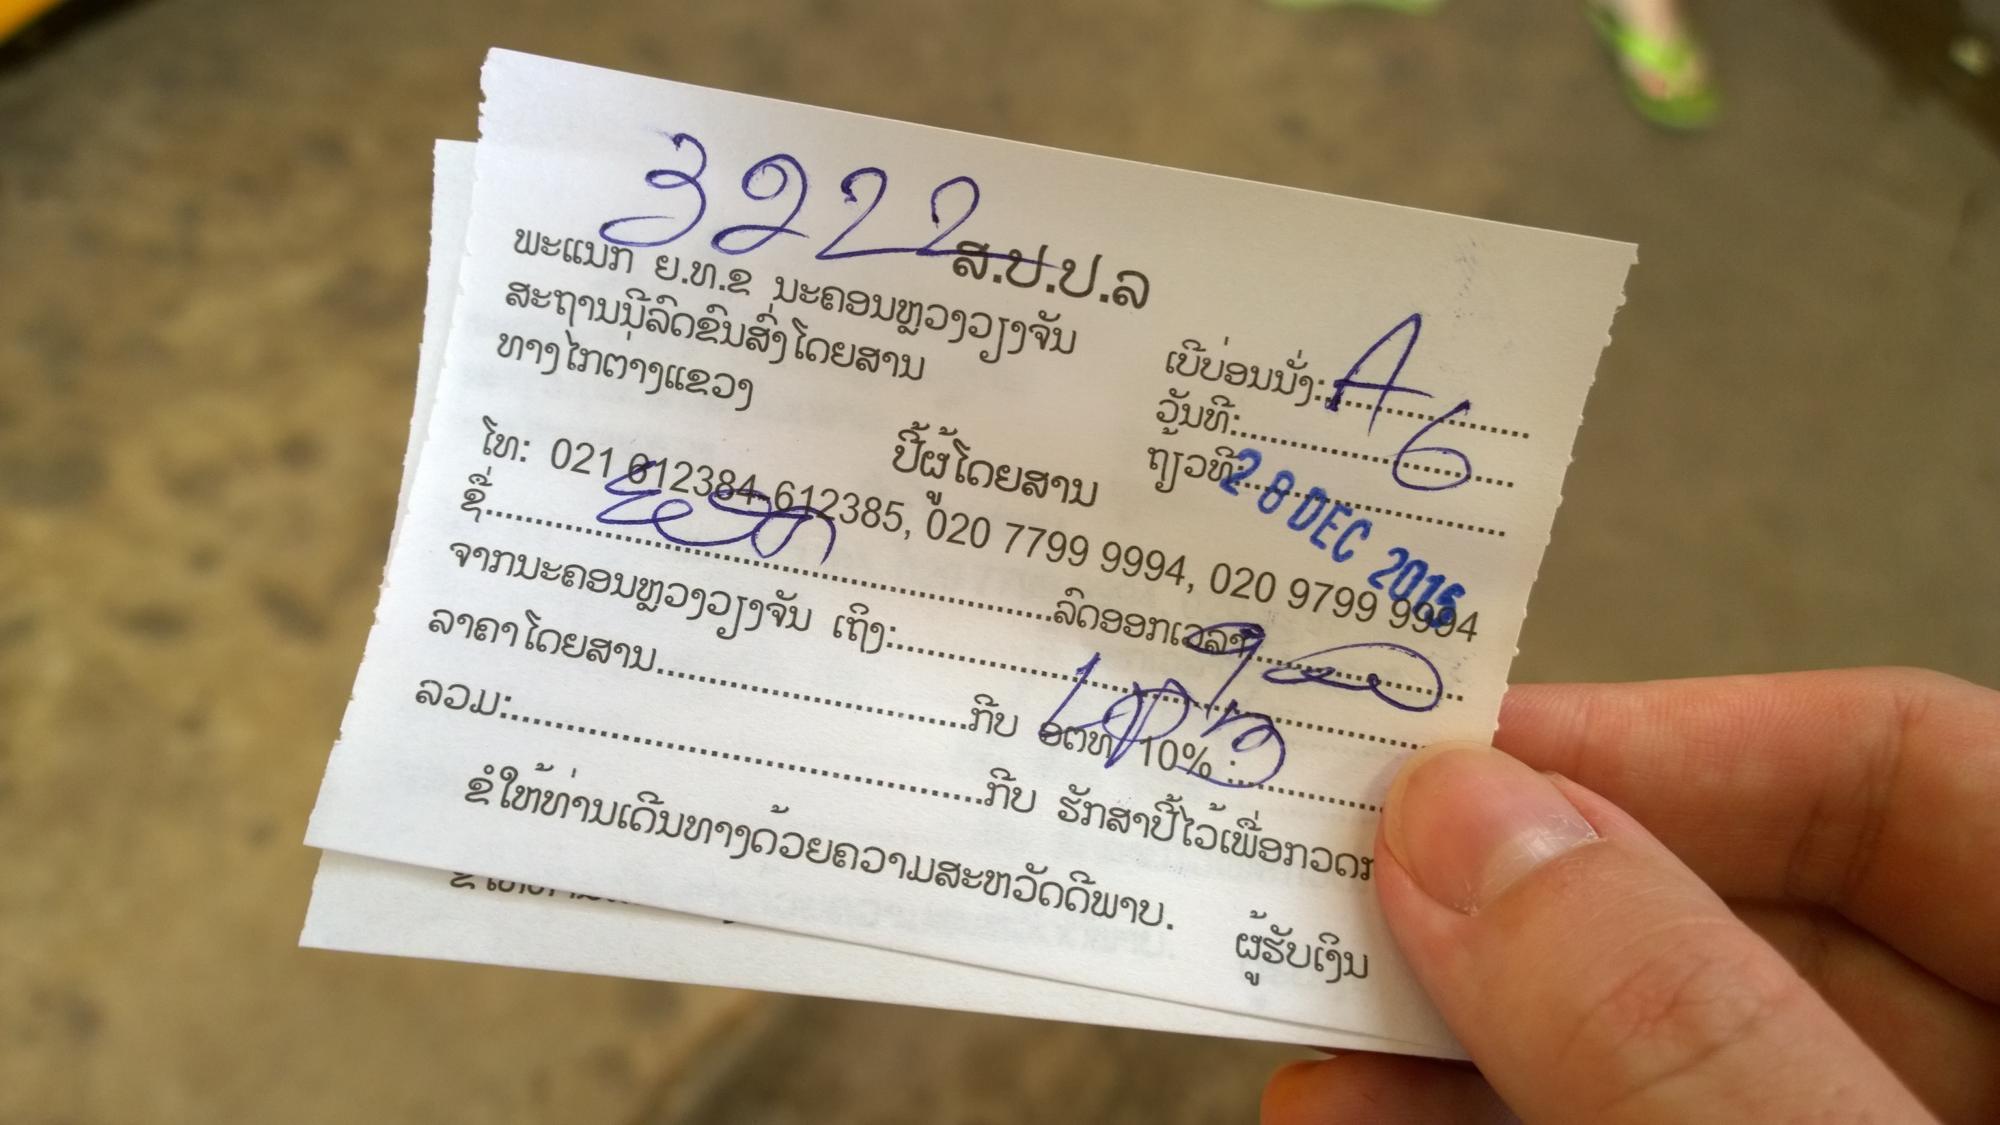 3222
ສ.ປ.ປ.ລ
ພະແນກ ຍ.ທ.ຂ ນະຄອນຫຼວງວຽງຈັນ
ສະຖານນີລົດຂົນສົ່ງໂດຍສານ
ທາງໄກຕ່າງແຂວງ
ເບີບ່ອນນັ່ງ: A6
ວັນທີ:
ຖ້ຽວທີ: 28 DEC 2015
ປີ້ຜູ້ໂດຍສານ
ໂທ: 021 612384-612385, 020 7799 9994, 020 9799 9994
ຊື່ ລົດອອກເວລາ
ຈາກນະຄອນຫຼວງວຽງຈັນ ເຖິງ:
ລາຄາໂດຍສານ ກີບ ອຕທ 10% :
ລວມ: ກີບ ຮັກສາປີ້ໄວ້ເພື່ອກວດກ
ຂໍໃຫ້ທ່ານເດີນທາງດ້ວຍຄວາມສະຫວັດດີພາບ.
ຜູ້ຮັບເງິນ